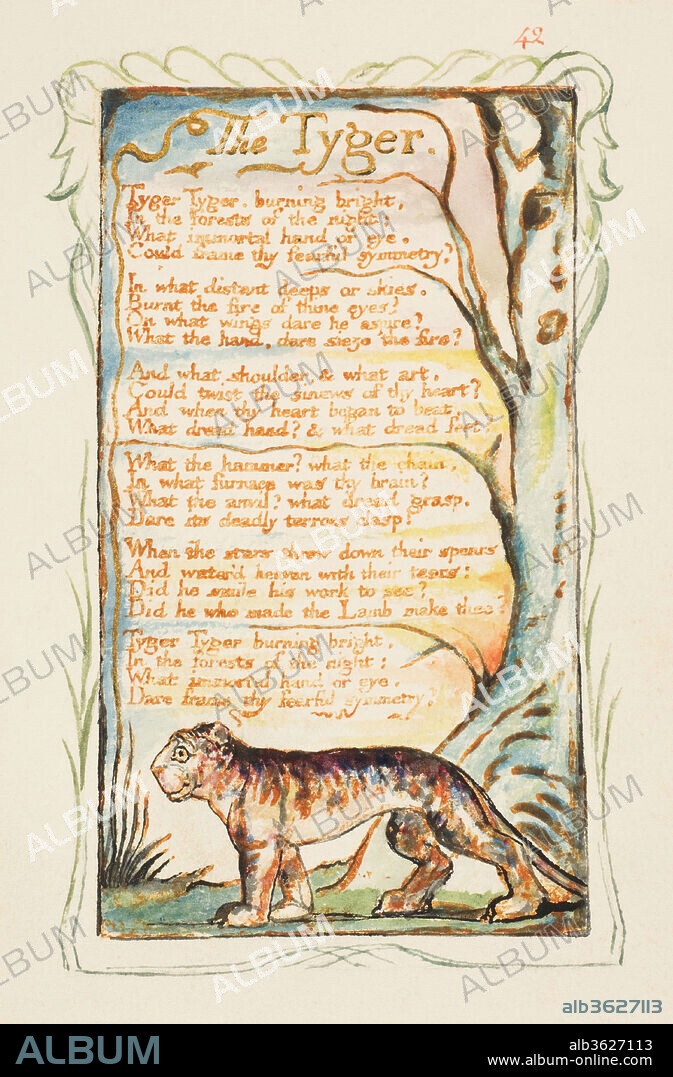 42
The Tyger.
Tyger Tyger. burning bright,
In the forests of the night:
What immortal hand or eye.
Could frame thy fearful symmetry?
In what distant deeps or skies.
Burnt the fire of thine eyes?
On what wings dare he aspire?
What the hand, dare sieze the fire?
And what shoulder, & what art,
Could twist the sinews of thy heart?
And when thy heart began to beat,
What dread hand? & what dread feet?
What the hammer? what the chain,
In what furnace was thy brain?
What the anvil? what dread grasp.
Dare its deadly terrors clasp!
When the stars threw down their spears
And water'd heaven with their tears:
Did he smile his work to see?
Did he who made the Lamb make thee?
Tyger Tyger burning bright,
In the forests of the night:
What immortal hand or eye.
Dare frame thy fearful symmetry?
alb3627113
ALBUM
alb3627113
www.album-online.com